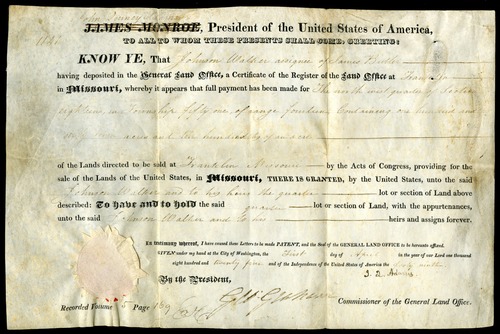 John Quincy Adams
JAMES MONROE, President of the United States of America,
TO ALL TO WHOM THESE PRESENTS SHALL COME, GREETING:
KNOW YE, That Johnson Walker assignee of James Butler
having deposited in the General Land Office, a Certificate of the Register of the Land Office at Franklin
in Missouri, whereby it appears that full payment has been made for The north west quarter of Section
eighteen in Township fifty one of range fourteen Containing one hundred and
acres and hundredths of an acre
of the Lands directed to be sold at Franklin Missouri by the Acts of Congress, providing for the
sale of the Lands of the United States, in Missouri, THERE IS GRANTED, by the United States, unto the said
Johnson Walker and to his heirs the quarter lot or section of Land above
described: To have and to hold the said quarter lot or section of Land, with the appurtenances,
unto the said Johnson Walker and to his heirs and assigns forever.
In testimony whereof, I have caused these Letters to be made PATENT, and the Seal of the GENERAL LAND OFFICE to be hereunto affixed.
GIVEN under my hand at the City of Washington, the First day of April in the year of our Lord one thousand
eight hundred and twenty five and of the Independence of the United States of America the forty ninth
By the President, J. Q. Adams
Geo: Graham Commissioner of the General Land Office.
Recorded Volume 5 Page 189